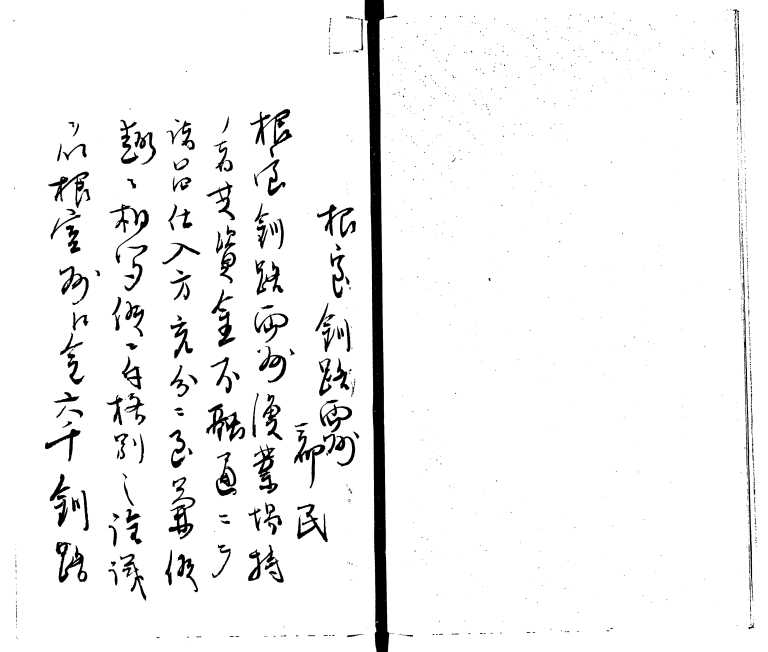 根室釧路両州
民
根室釧路両州漁業場持
ノ者共資金不融通ニテ
諸品仕入方充分ニ至兼候
趣ニ相聞候ニ付格別之詮議
ヲ以根室州江金六千釧路